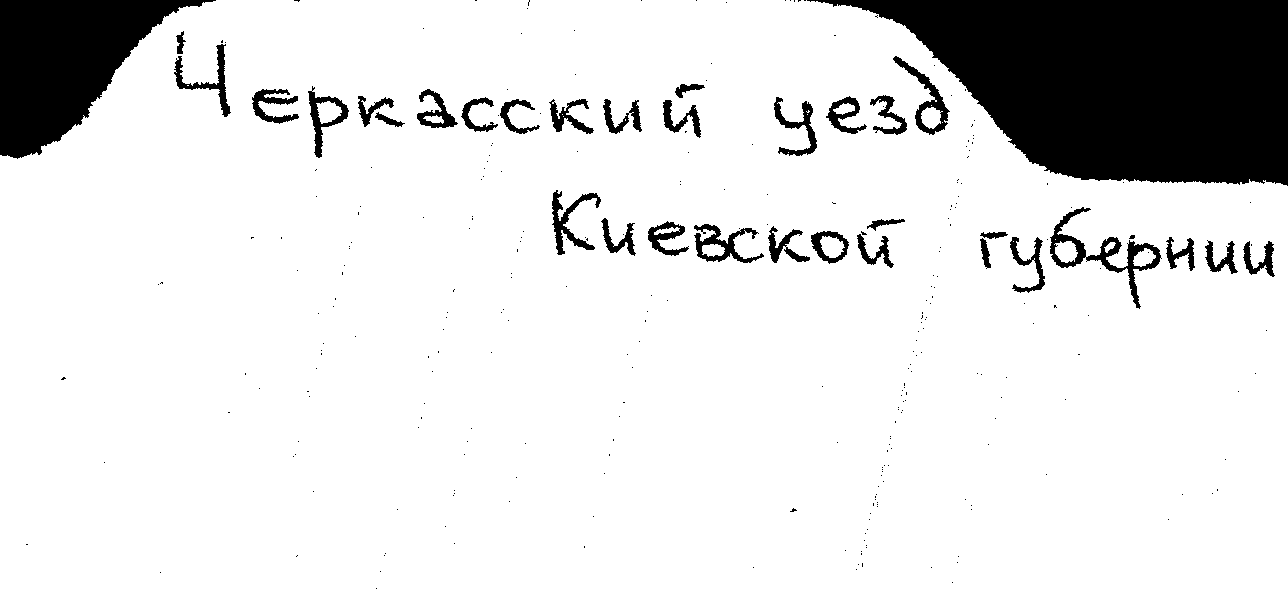 Черкасский уезд
Киевской губернии